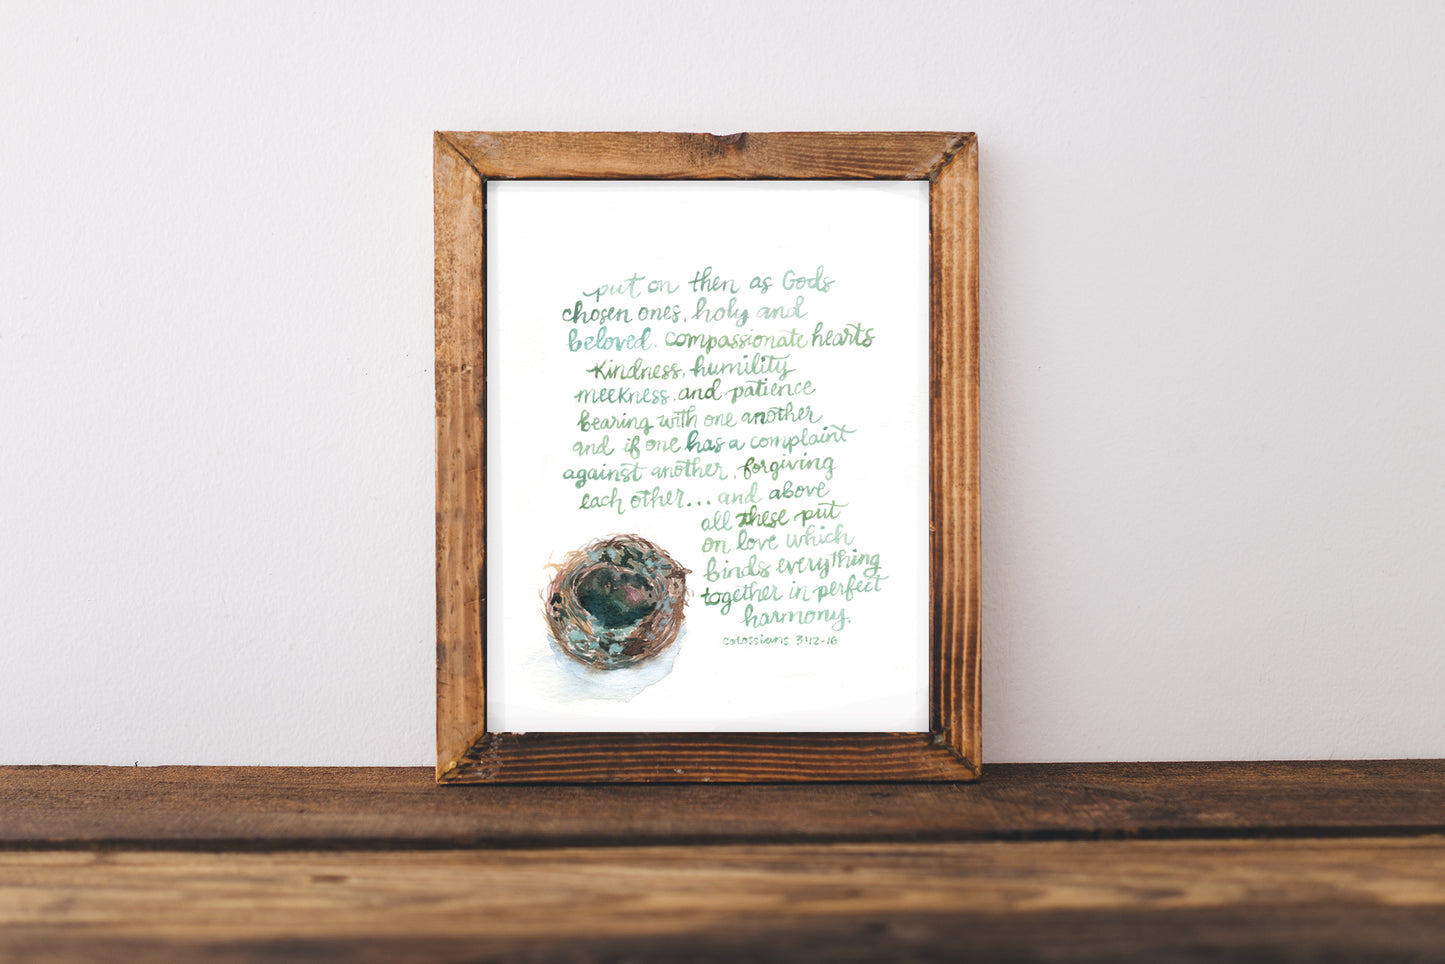 put on then as Gods
chosen ones, holy and
beloved. compassionate hearts
kindness, humility
meekness, and patience
bearing with one another
and if one has a complaint
against another, forgiving
each other... and above
all these put
on love which
binds everything
together in perfect
harmony.
colossians 3:12-16